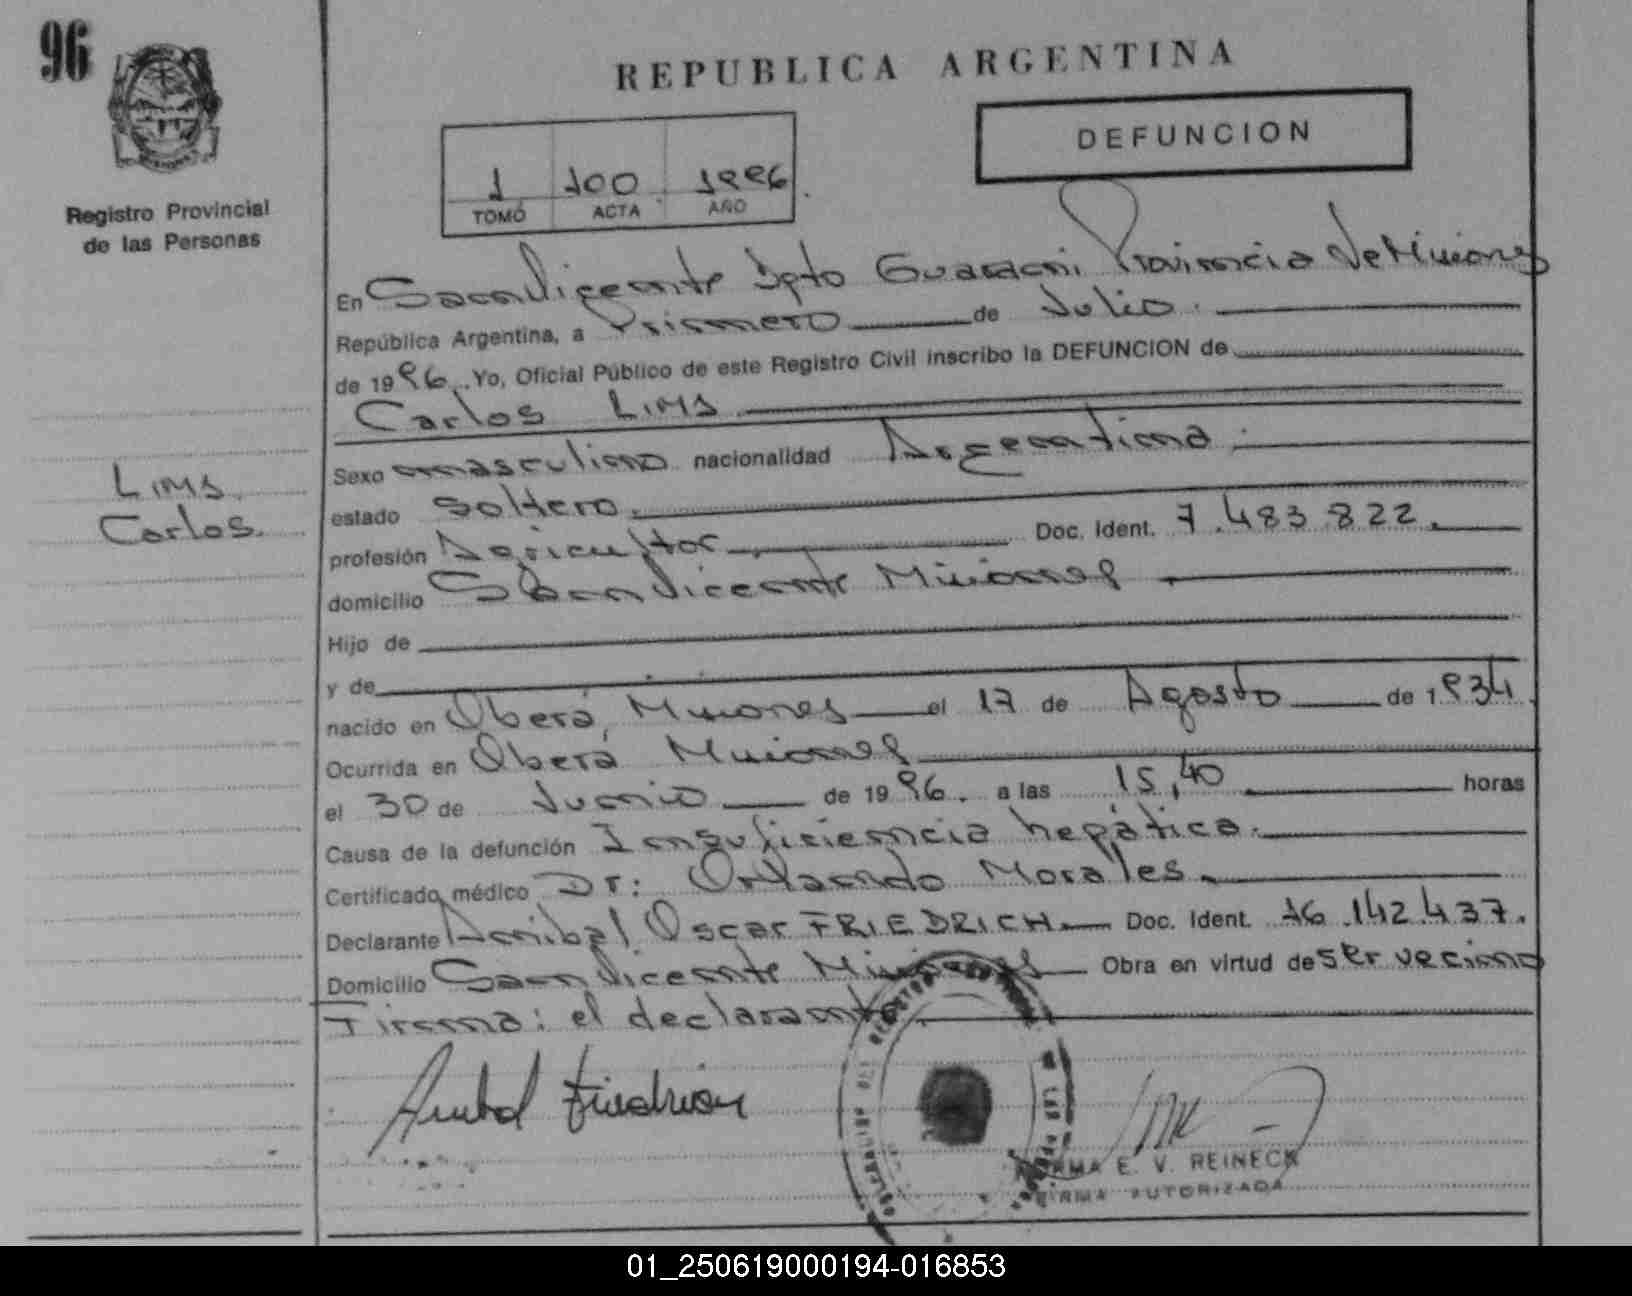 96
REPUBLICA ARGENTINA
DEFUNCION
1 100 1996
TOMO ACTA AÑO
Registro Provincial
de las Personas
En San Vicente Dpto Guarani Provincia de Misiones
República Argentina, a Primero de Julio.
de 1996. Yo, Oficial Público de este Registro Civil inscribo la DEFUNCION de
Carlos LIMS
Sexo masculino nacionalidad Argentina.
LIMS
Carlos.
estado Soltero.
profesión Agricultor Doc. Ident. 7.483.822.
domicilio San Vicente Misiones
Hijo de
y de
nacido en Oberá, Misiones el 17 de Agosto de 1934
Ocurrida en Oberá Misiones
el 30 de Junio de 1996. a las 15,40 horas
Causa de la defunción Insuficiencia hepática.
Certificado médico Dr: Orlando Morales.
Declarante Anibal Oscar FRIEDRICH Doc. Ident. 16.142.437.
Domicilio San Vicente Misiones Obra en virtud de ser vecino
Firma: el declarante
Anibal Friedrich
E. V. REINECK
FIRMA AUTORIZADA
01_250619000194-016853